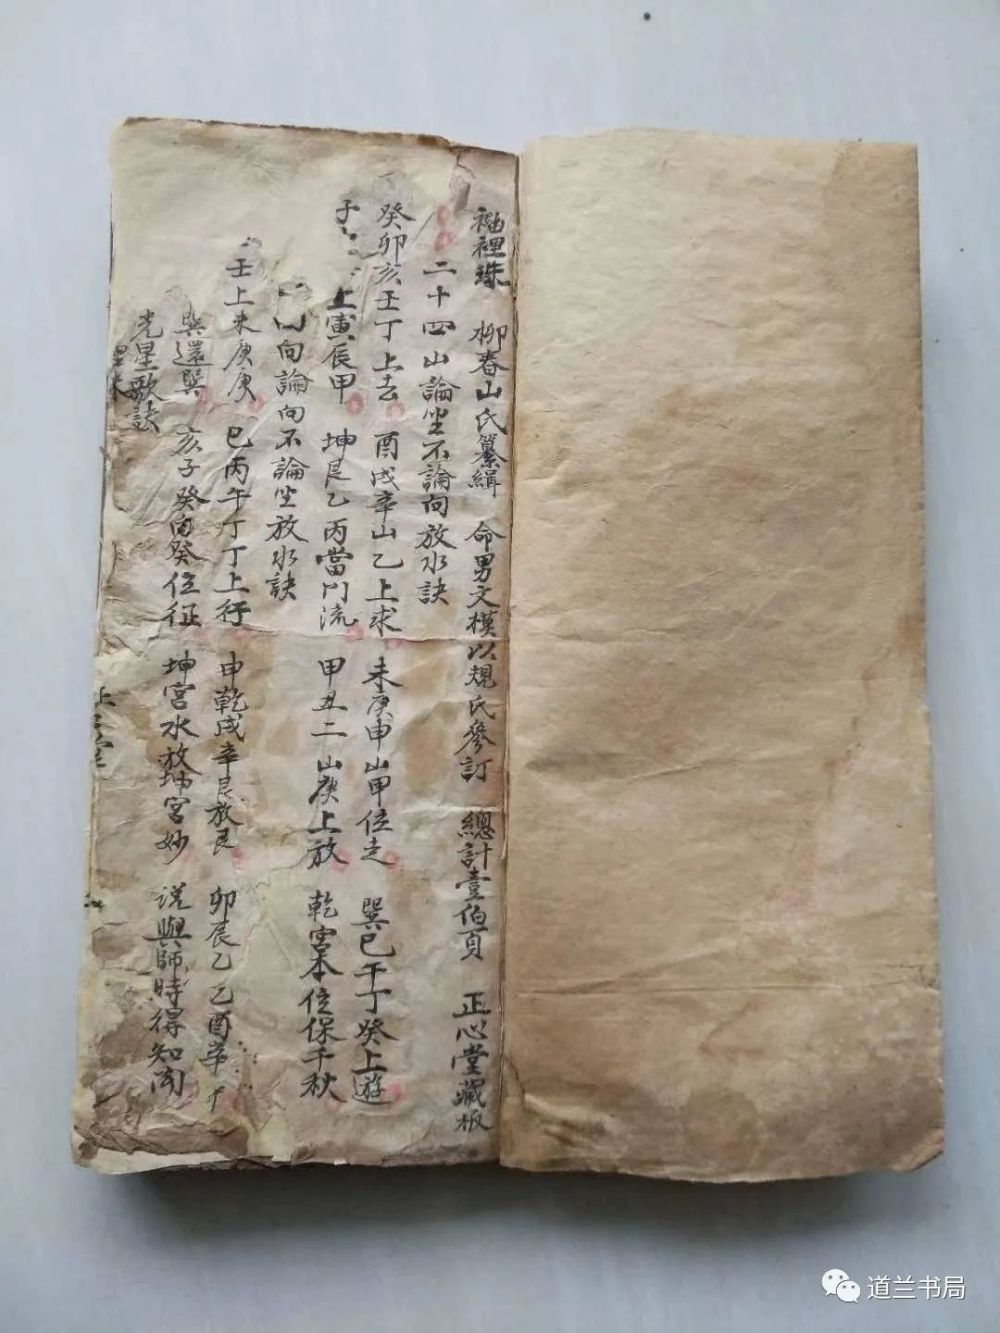 袖裡珠 柳春山氏纂緝 命男文模以規氏參訂 總計壹佰頁 正心堂藏板
二十四山論坐不論向放水訣
癸卯亥壬丁上去 酉戌辛山乙上求 未庚申山甲位走 巽巳午丁癸上遊
子 上寅辰甲 坤艮乙丙當门流 甲丑二山庚上放 乾宮本位保千秋
向論向不論坐放水訣
壬上未庚庚 巳丙午丁丁上行 申乾戌辛艮放艮 卯辰乙乙酉辛
與還巽 亥子癸向癸位征 坤宮水放坤宮妙 說與師時得知闻
光星歌訣
道兰书局